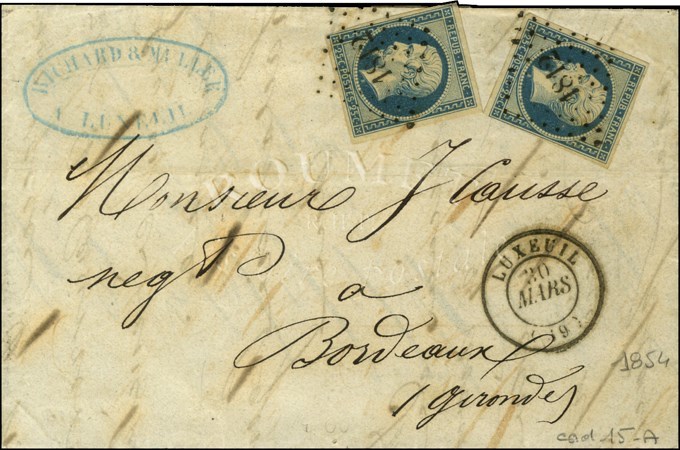 RICHARD & MULLER
A LUXEUIL
REPUB. FRANC.
1812
25c. POSTES 25c.
REPUB. FRANC.
1812
Monsieur J Causse
negt
a
Bordeaux
(gironde)
LUXEUIL
20
MARS
(69)
1854
cad-15-A